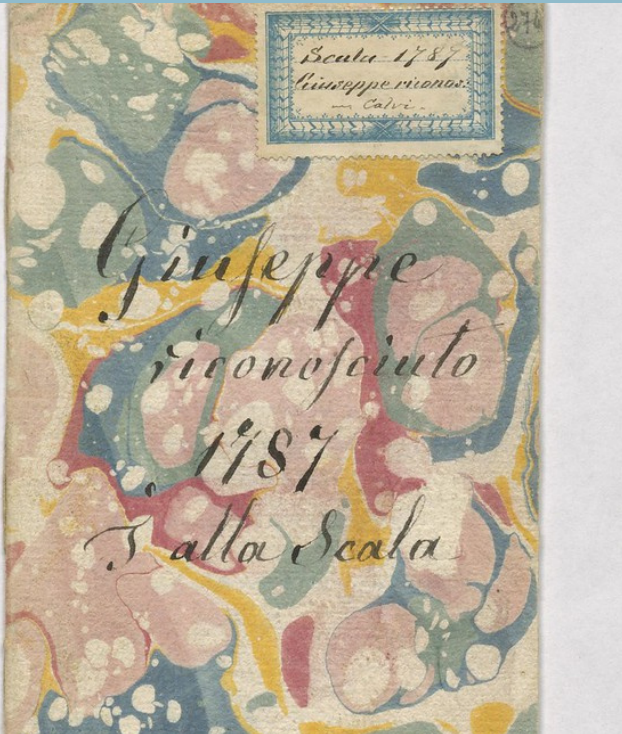 Scala - 1787
Giuseppe riconos:
— Calvi -
276
Giuſeppe
riconoſciuto
1787
T alla Scala